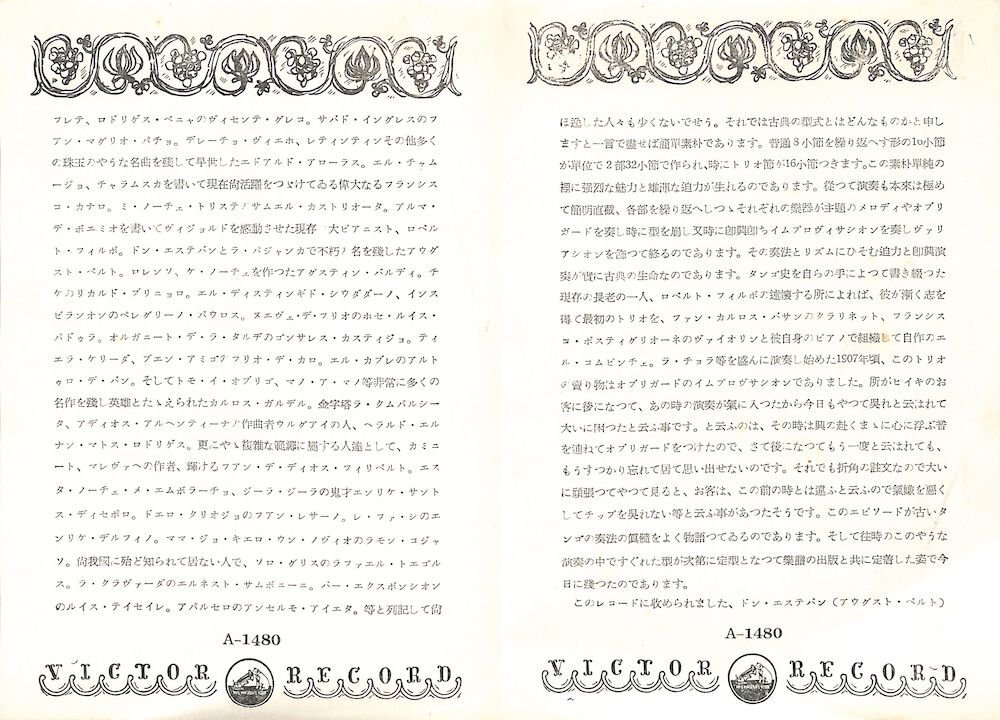 フレテ、ロドリゲス・ペニャのヴィセンテ・グレコ。サバド・イングレスのフ
アン・マグリオ・パチョ。デレーチョ・ヴィエホ、レティンティンその他多く
の珠玉のやうな名曲を残して早世したエドアルド・アローラス。エル・チャム
ージョ、チャラムスカを書いて現在尙活躍をつゞけてゐる偉大なるフランシス
コ・カナロ。ミ・ノーチェ・トリステのサムエル・カストリオータ。アルマ・
デ・ボエミオを書いてヴィジョルドを感動させた現存の大ピアニスト、ロベル
ト・フィルポ。ドン・エステバンとラ・バジャンカで不朽の名を殘したアウグ
スト・ベルト。ロレンソ、ケ・ノーチェを作つたアグスティン・バルディ。チ
ケのリカルド・ブリニョロ。エル・ディスティンギド・シウダダーノ、インス
ピランオンのペレグリーノ・パウロス。ヌエヴェ・デ・フリオのホセ・ルイス・
パドゥラ。オルガニート・デ・ラ・タルデのゴンサレス・カスティジョ。ティ
エラ・ケリーダ、ブエン・アミゴのフリオ・デ・カロ。エル・カブレのアルト
ゥロ・デ・バン。そしてトモ・イ・オブリゴ、マノ・ア・マノ等非常に多くの
名作を殘し英雄とたゝえられたカルロス・ガルデル。金字塔ラ・クムパルシー
タ、アディオス・アルヘンティーナの作曲者ウルグアイの人、ヘラルド・エル
ナン・マトス・ロドリゲス。更にやゝ複雜な範疇に屬する人達として、カミニ
ート、マレヴァヘの作者、輝けるフアン・デ・ディオス・フィリベルト。エス
タ・ノーチェ・メ・エムボラーチョ、ジーラ・ジーラの鬼才エンリケ・サント
ス・ディセポロ。ドエロ・クリオジョのフアン・レサーノ。レ・ファ・シのエ
ンリケ・デルフィノ。ママ・ジョ・キエロ・ウン・ノヴィオのラモン・コジャ
ソ。尙我國に殆ど知られて居ない人で、ソロ・グリスのラファエル・トエゴル
ス。ラ・クラヴァーダのエルネスト・サムボニーニ。バー・エクスポンシオン
のルイス・テイセイレ。アパルセロのアンセルモ・アイエタ。等と列記して尙
A-1480
VICTOR RECORD
ほ逸した人々も少くないでせう。それでは古典の型式とはどんなものかと申し
ますと一言で盡せば簡單素朴であります。普通８小節を繰り返へす形の16小節
が單位で２部32小節で作られ、時にトリオ節が16小節つきます。この素朴單純の
裡に强烈な魅力と雄渾な迫力が生れるのであります。從つて演奏も本來は極め
て簡明直截、各部を繰り返へしつゝそれぞれの樂器が主題のメロディやオブリ
ガードを奏し時に型を崩し又時に卽興卽ちイムプロヴィサシオンを奏しヴァリ
アシオンを飾つて終るのであります。その奏法とリズムにひそむ迫力と卽興演
奏が實に古典の生命なのであります。タンゴ史を自らの手によつて書き綴つた
現存の長老の一人、ロベルト・フィルポの述懷する所によれば、彼が漸く志を
得て最初のトリオを、ファン・カルロス・バサンのクラリネット、フランシス
コ・ポスティグリオーネのヴァイオリンと彼自身のピアノで組織して自作のエ
ル・コムピンチェ。ラ・チョラ等を盛んに演奏し始めた1907年頃、このトリオ
の賣り物はオブリガードのイムプロヴサシオンでありました。所がヒイキのお
客に後になつて、あの時の演奏が氣に入つたから今日もやつて吳れと云はれて
大いに困つたと云ふ事です。と云ふのは、その時は興の赴くまゝに心に浮ぶ音
を連ねてオブリガードをつけたので、さて後になつてもう一度と云はれても、
もうすつかり忘れて居て思い出せないのです。それでも折角の註文なので大い
に頑張つてやつて見ると、お客は、この前の時とは違ふと云ふので氣嫌を惡く
してチップを吳れない等と云ふ事があつたそうです。このエピソードが古いタ
ンゴの奏法の眞髓をよく物語つてゐるのであります。そして往時のこのやうな
演奏の中ですぐれた型が次第に定型となつて樂譜の出版と共に定着した姿で今
日に殘つたのであります。
このレコードに收められました、ドン・エステバン（アウグスト・ベルト）
A-1480
VICTOR RECORD